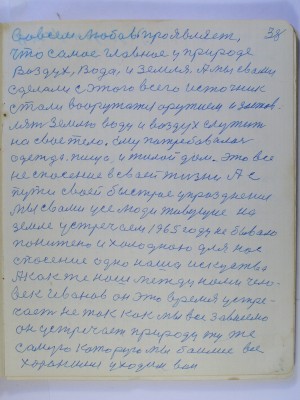 38
Совсем любовь проявляет,
что самое главное у природе
воздух, вода, и земля. А мы с вами
сделали с этого всего источник
стали вооружатся оружием и
лят землю воду и воздух служит
на свое тело. Ему потребовалас
одежда. пища, и жилой дом. Это все
не спасение в своей жизни А с
пути своей быстрое упразднения
Мы с вами усе люди живущие на
земле устречаем 1965 году не бывало
понижено и холодною для нас
спасение одно наша искуства
А как же наш между нами чело-
век Иванов он это время устре-
чает не так как мы все зависемо
он устречает природу ту же
самую которую мы боимся все
хорошими уходим вон